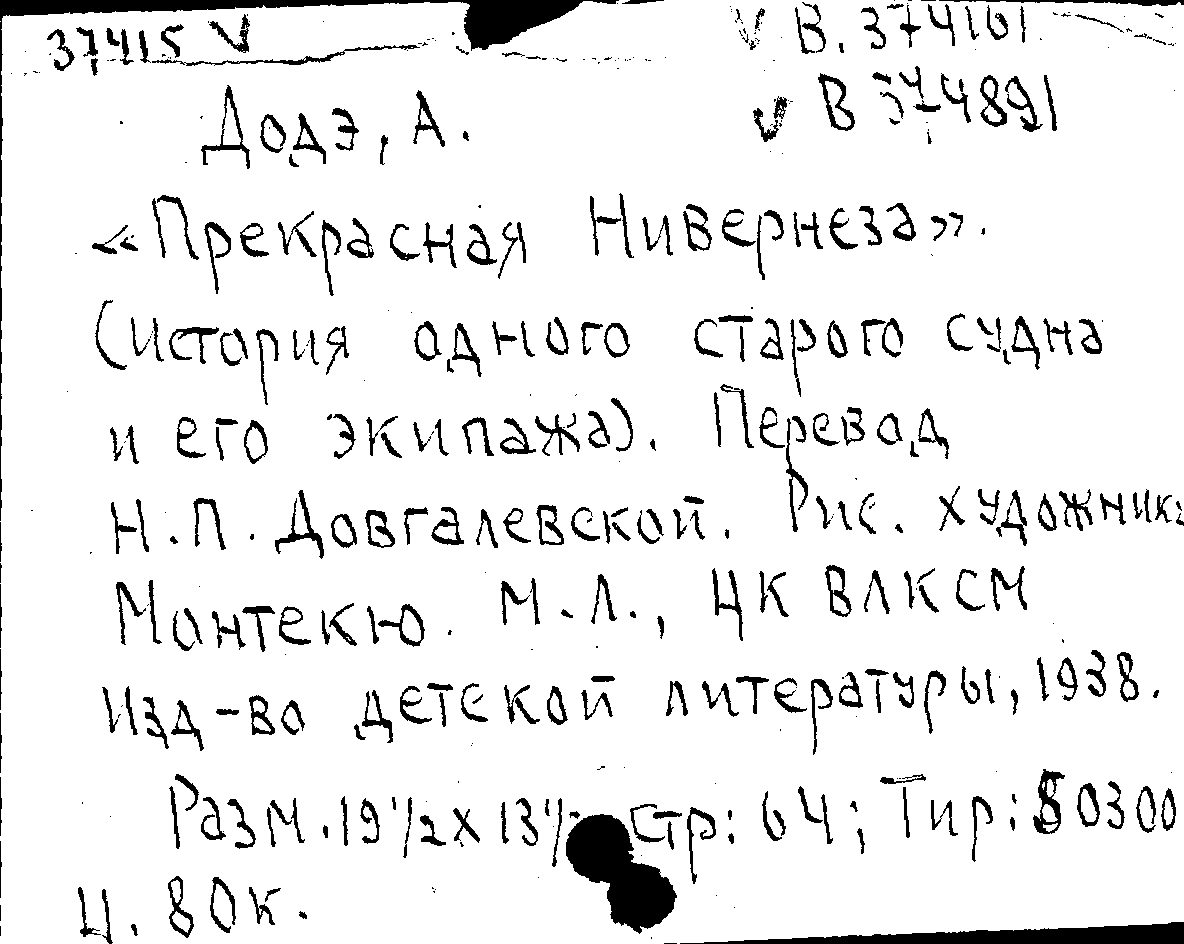 37415 V
V В. 374161
V В 374891
Додэ, А.
«Прекрасная Нивернеза».
(История одного старого судна
и его экипажа). Перевод
Н.П. Довгалевской. Рис. художника
Монтекю. М.-Л., ЦК ВЛКСМ
Изд-во детской литературы, 1938.
Разм. 19 1/2 x 13 1/ стр: 64; Тир: 50300
Ц. 80к.